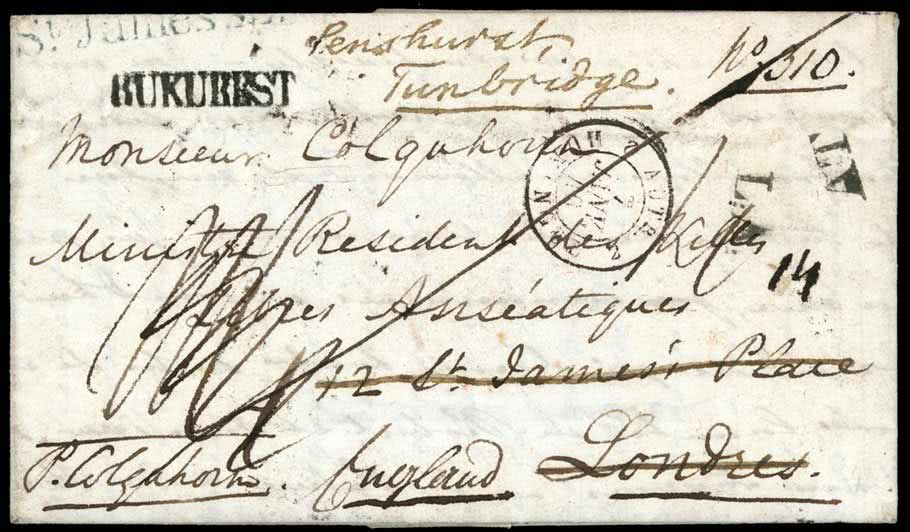 St. James's
Penshurst,
Tunbridge.
No. 310.
BUKUREST
Monsieur Colquhoun
AUTR.
HUNINGUE
LA
L.A
Ministre Resident des Villes
14
Libres Anséatiques
12 St. James's Place
P. Colquhoun. England Londres.